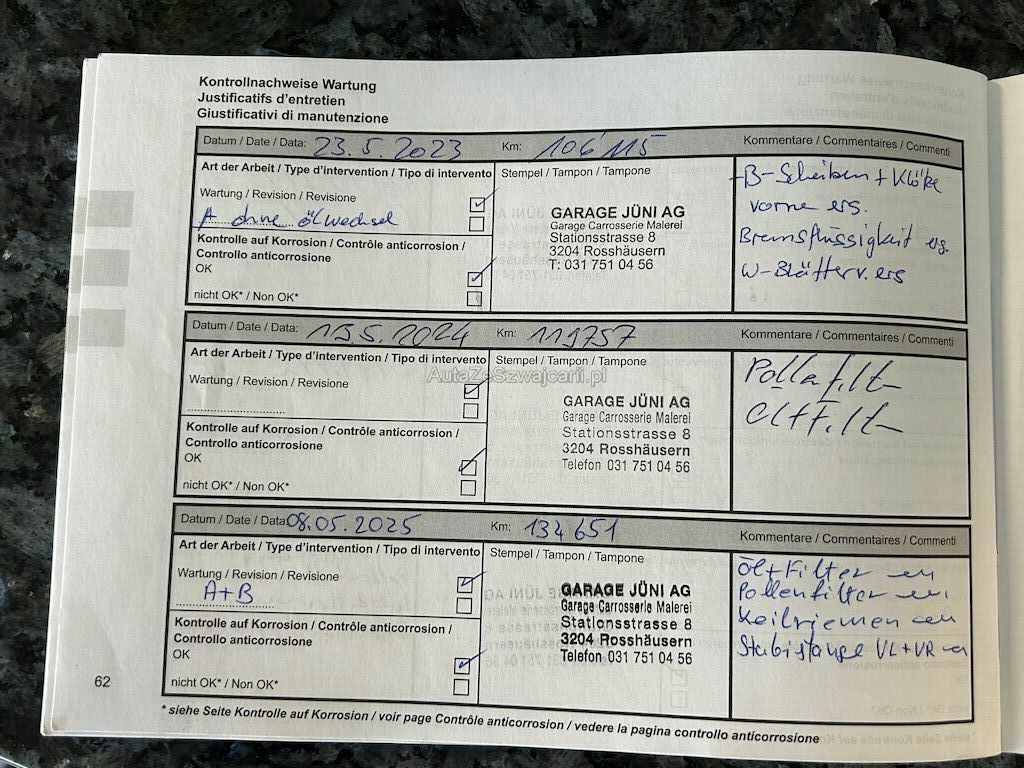 Kontrollnachweise Wartung
Justificatifs d'entretien
Giustificativi di manutenzione
Datum / Date / Data: 23.5.2023 Km: 106'115 Kommentare / Commentaires / Commenti
Art der Arbeit / Type d'intervention / Tipo di intervento
Wartung / Revision / Revisione
A ohne ölwechsel
Kontrolle auf Korrosion / Contrôle anticorrosion /
Controllo anticorrosione
OK
nicht OK* / Non OK*
Stempel / Tampon / Tampone
GARAGE JÜNI AG
Garage Carrosserie Malerei
Stationsstrasse 8
3204 Rosshäusern
T: 031 751 04 56
B-Scheiben + Klötze
vorne ers.
Bremsflüssigkeit ers.
W-Blätter v. ers
Datum / Date / Data: 13.5.2024 Km: 119757 Kommentare / Commentaires / Commenti
Art der Arbeit / Type d'intervention / Tipo di intervento
Wartung / Revision / Revisione
Kontrolle auf Korrosion / Contrôle anticorrosion /
Controllo anticorrosione
OK
nicht OK* / Non OK*
Stempel / Tampon / Tampone
AutaZeSzwajcarii.pl
GARAGE JÜNI AG
Garage Carrosserie Malerei
Stationsstrasse 8
3204 Rosshäusern
Telefon 031 751 04 56
Datum / Date / Data 08.05.2025 Km: 134651 Kommentare / Commentaires / Commenti
Art der Arbeit / Type d'intervention / Tipo di intervento
Wartung / Revision / Revisione
A+B
Kontrolle auf Korrosion / Contrôle anticorrosion /
Controllo anticorrosione
OK
nicht OK* / Non OK*
Stempel / Tampon / Tampone
GARAGE JÜNI AG
Garage Carrosserie Malerei
Stationsstrasse 8
3204 Rosshäusern
Telefon 031 751 04 56
Öl+Filter
Pollenfilter
Keilriemen
Stabistange VL+VR
62
* siehe Seite Kontrolle auf Korrosion / voir page Contrôle anticorrosion / vedere la pagina controllo anticorrosione